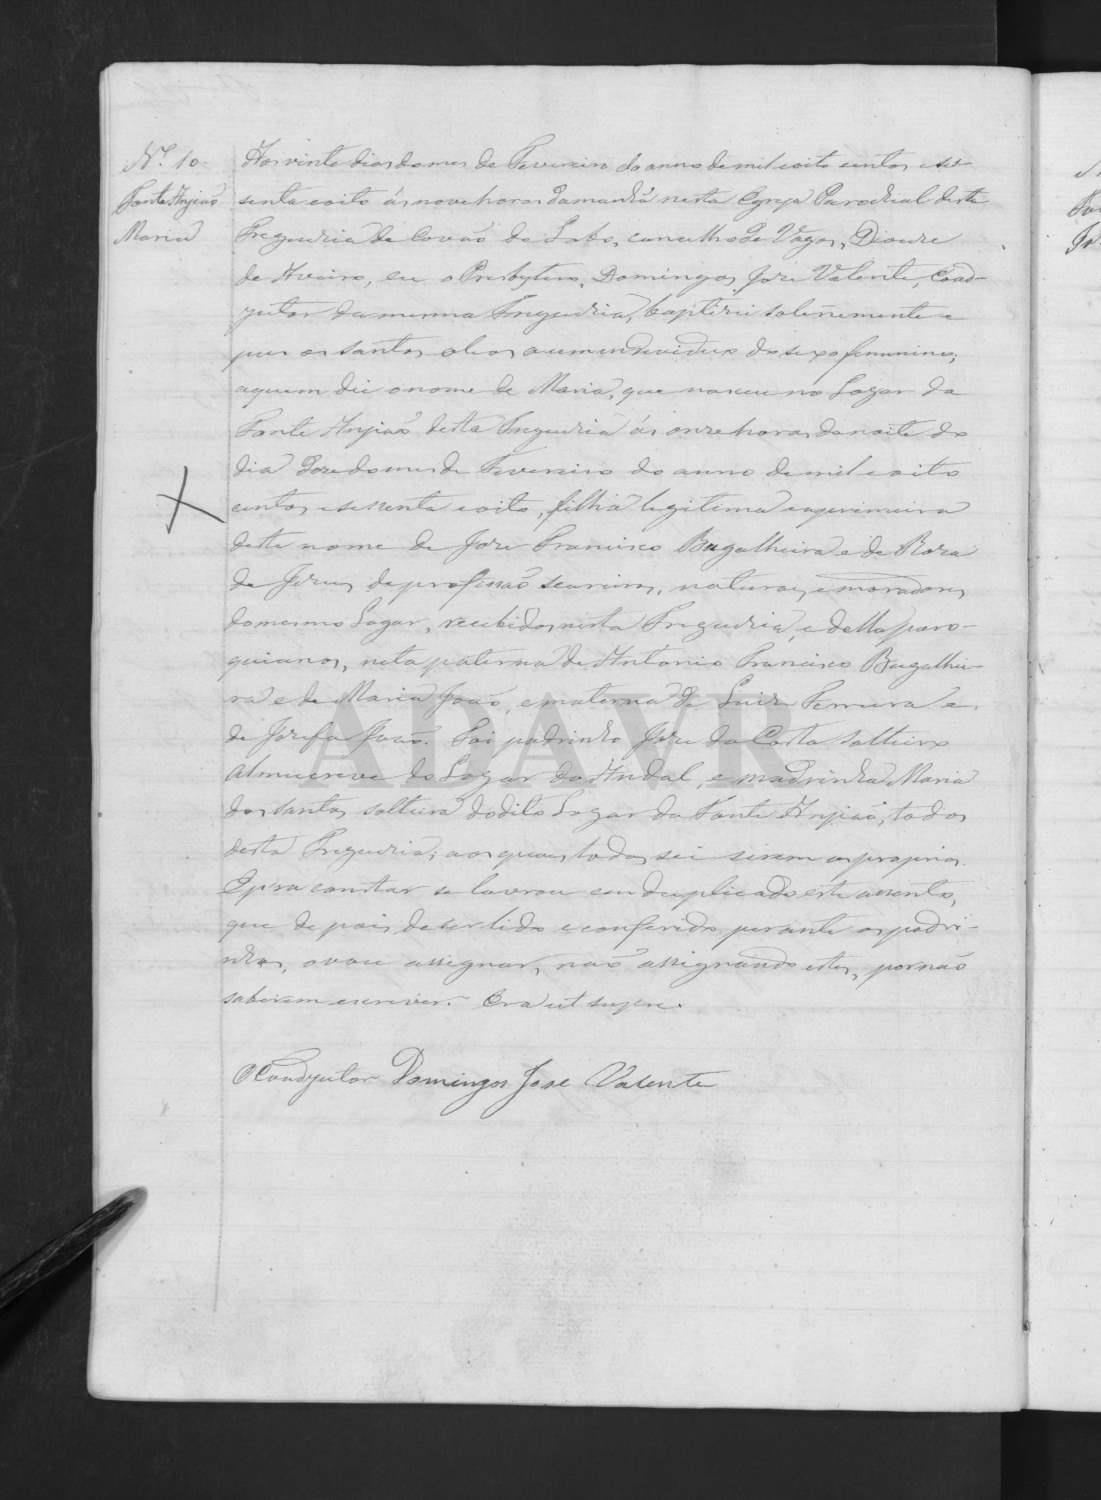 Nº 10
Fonte Angião
Maria
Aos vinte dias do mes de Fevereiro do anno de mil e oito centos e ses-
senta e oito ás nove horas da manhã nesta Egreja Parochial desta
Freguezia de Covão do Lobo, concelho de Vagos, Diocese
de Aveiro, eu o Presbytero, Domingos Jose Valente, Coad-
jutor da mesma Freguezia, baptizei solemnemente e
pus os santos oleos a um individuo do sexo femenino,
a quem dei o nome de Maria, que nasceu no Logar da
Fonte Angião desta Freguezia ás onze horas da noite do
dia doze do mes de Fevereiro do anno de mil e oito
centos e sessenta e oito, filha legitima e a primeira
deste nome de Joze Francisco Bugalheira e de Roza
de Jezus, de profissão seareiros, naturaes e moradores
do mesmo Logar, recebidos nesta Freguezia, e della paro-
quianos, neta paterna de Antonio Francisco Bugalhei-
ra e de Maria João, e materna de Luiz Ferreira e
de Jozefa João. Foi padrinho Joze da Costa solteiro
Almucreve do Logar do Andal, e madrinha Maria
dos Santos solteira do dito Logar da Fonte Angião, todos
desta Freguezia; aos quaes todos sei serem os proprios.
E para constar se lavrou em duplicado este assento,
que depois de ser lido e conferido perante os padri-
nhos, o vou assignar, não assignando estes, por não
saberem escrever. Era ut supra.
O Coadjutor Domingos Jose Valente
ADAVR